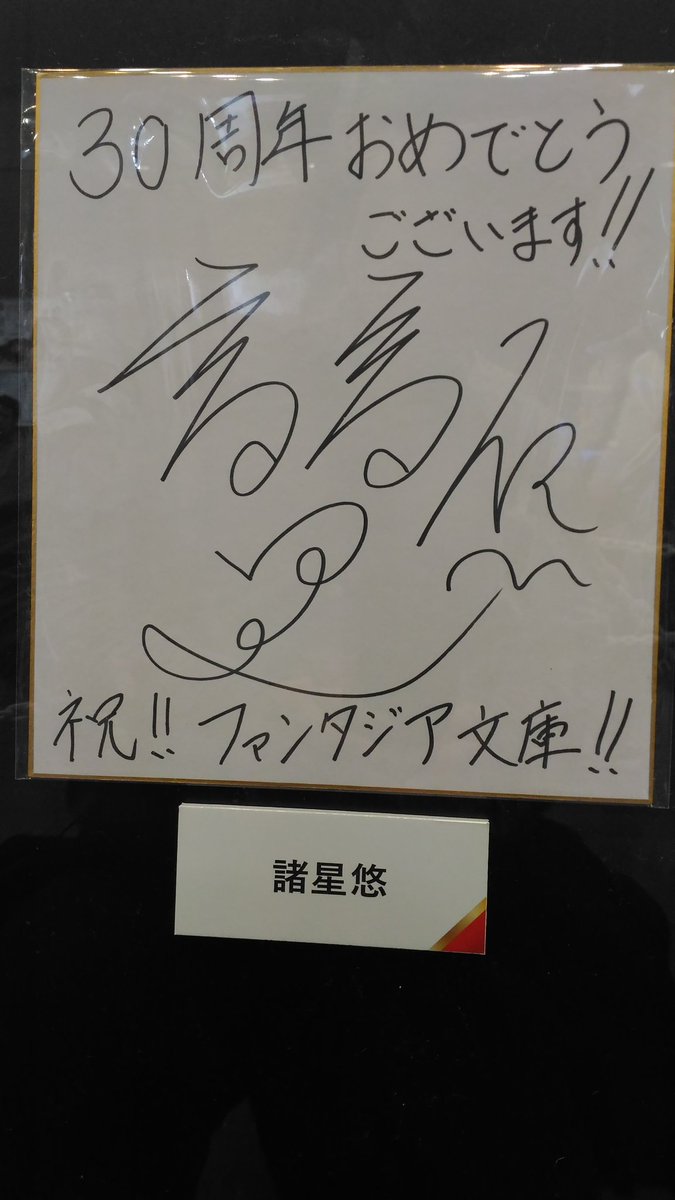 30周年おめでとう
ございます!!
祝!! ファンタジア文庫!!
諸星悠